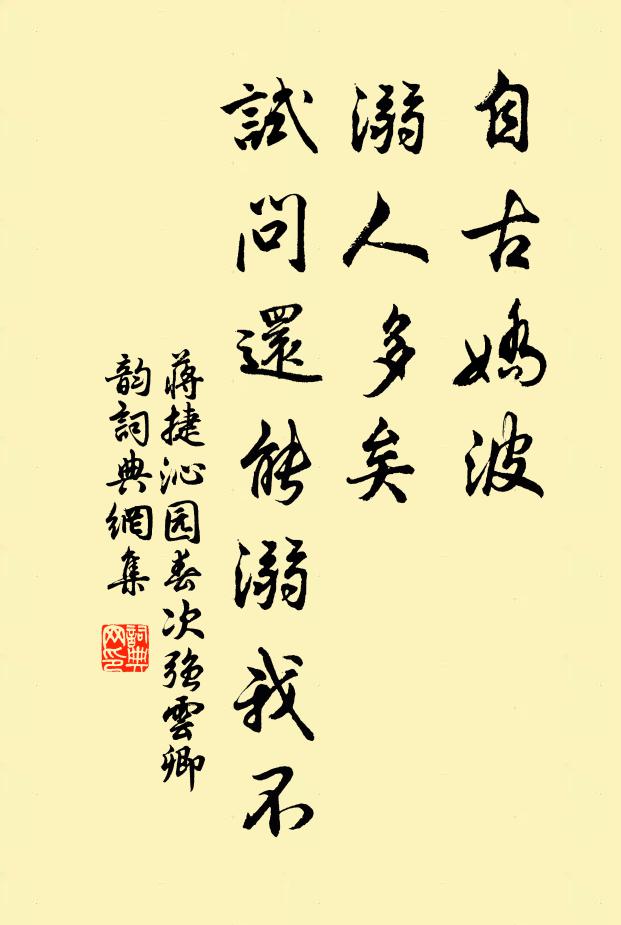 自古嬌波
溺人多矣
試問還能溺我不
蔣捷沁园春次強雲卿
韵詞典網集
詞典
网印